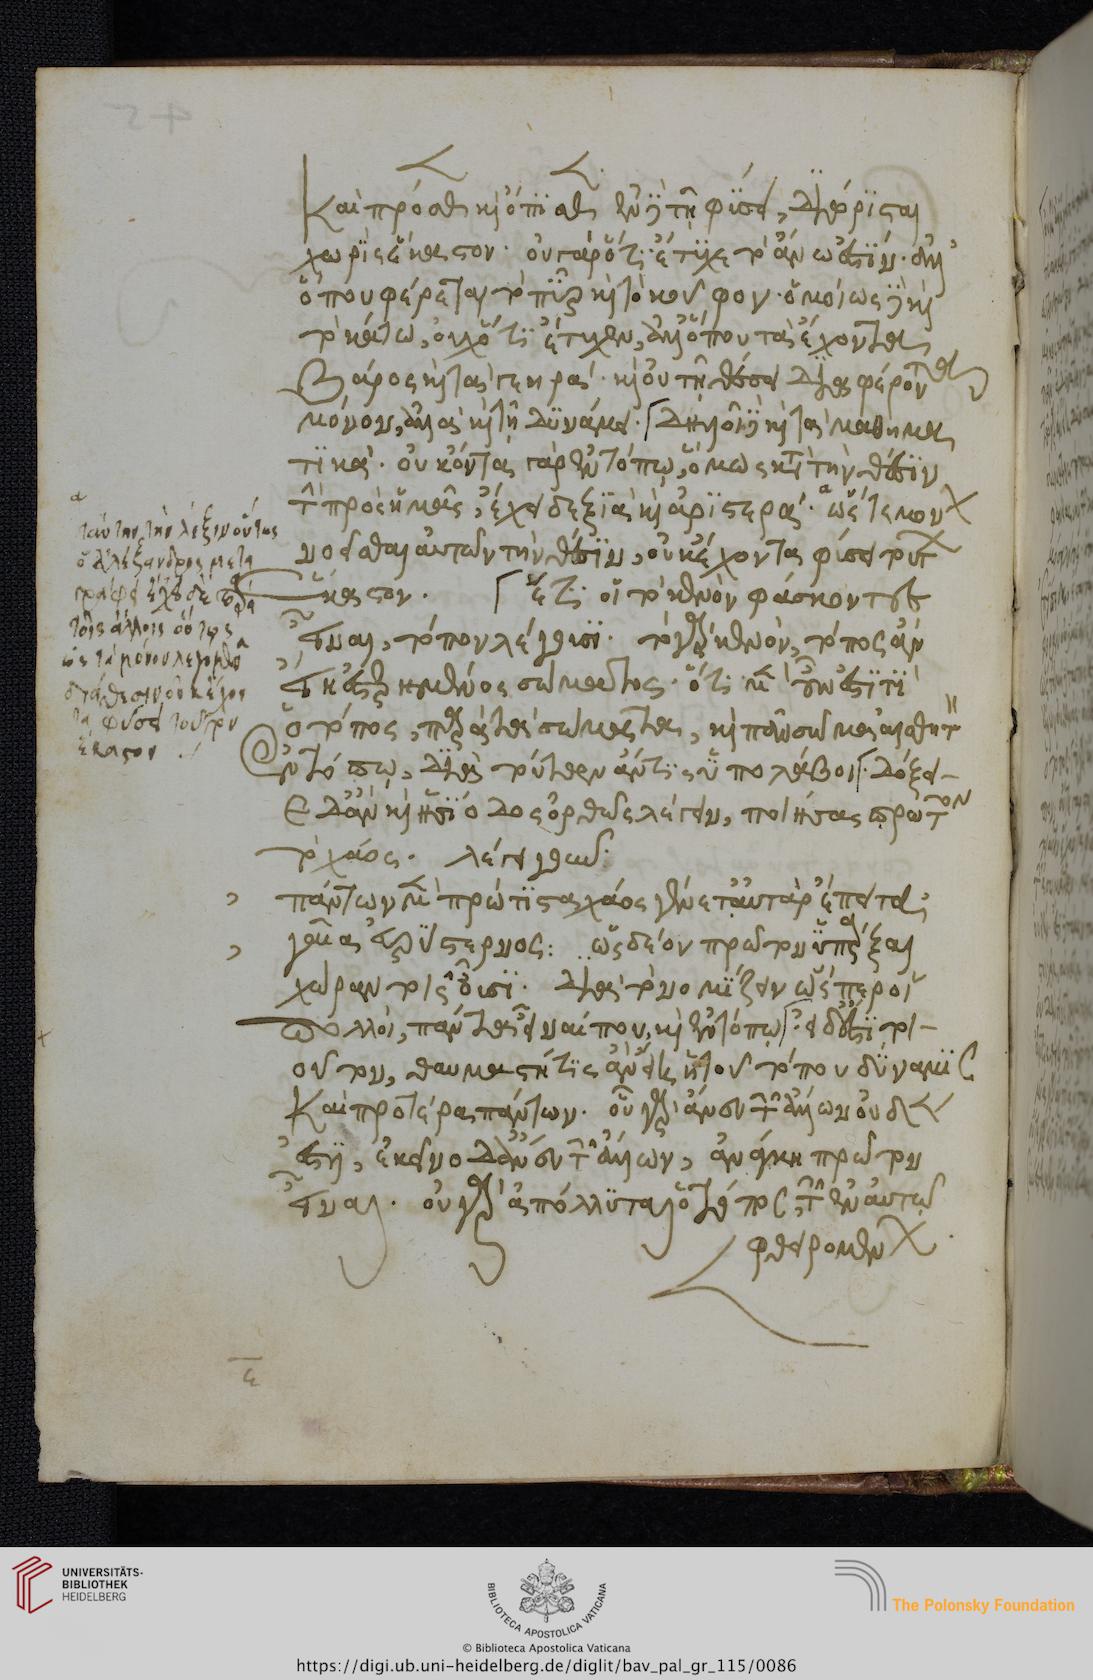 καὶ πρόσθεν καὶ ὄπισθεν. ἐν δὲ τῇ φύσει, διώρισται
χωρὶς ἕκαστον. οὐ γὰρ ὅτι ἔτυχε τὸ ἄνω ἐστὶν. ἀλλ'
ὅπου φέρεται τὸ πῦρ καὶ τὸ κοῦφον. ὁμοίως δὲ καὶ
τὸ κάτω, οὐχ ὅτι ἔτυχεν, ἀλλ' ὅπου τὰ ἔχοντα
βάρος καὶ τὰ γεηρά. ὡς οὐ τῇ θέσει διαφέροντα
μόνον, ἀλλὰ καὶ τῇ δυνάμει. δηλοῖ δὲ καὶ τὰ μαθημα
τικά. οὐκ ὄντα γὰρ ἐν τόπῳ, ὅμως κατὰ τὴν θέσιν
τὴν πρὸς ἡμᾶς, ἔχει δεξιὰ καὶ ἀριστερά. ὥστε μόνον
νοεῖσθαι αὐτῶν τὴν θέσιν, οὐκ ἔχοντα φύσει τούτων
ἕκαστον. ἔτι οἱ τὸ κενὸν φάσκοντες
εἶναι, τόπον λέγουσι. τὸ γὰρ κενὸν, τόπος ἂν
εἴη ἐστερημένος σώματος. ὅτι μὲν οὖν ἐστί τι
ὁ τόπος, παρὰ τὰ σώματα, καὶ πᾶν σῶμα αἰσθητὸν
ἐν τόπῳ, διὰ τούτων ἄν τις ὑπολάβοι. δόξει
δ' ἂν καὶ ἡσίοδος ὀρθῶς λέγειν, ποιήσας πρῶτον
τὸ χάος. λέγει γοῦν.
πάντων μὲν πρώτιστα χάος γένετ' αὐτὰρ ἔπειτα,
γαῖα εὐρύστερνος: ὡς δέον πρῶτον ὑπάρξαι
χώραν τοῖς οὖσι. διὰ τὸ νομίζειν ὥσπερ οἱ
πολλοὶ, πάντα εἶναί που, καὶ ἐν τόπῳ. εἰ δ' ἐστὶ τοι
οῦτον, θαυμαστή τις ἂν εἴη ἡ τοῦ τόπου δύναμις
καὶ προτέρα πάντων. οὗ γὰρ ἄνευ τῶν ἄλλων οὐδὲν
ἐστὶν, ἐκεῖνο δ' ἄνευ τῶν ἄλλων, ἀνάγκη πρῶτον
εἶναι. οὐ γὰρ ἀπόλλυται ὁ τόπος, τῶν ἐν αὐτῷ
φθειρομένων.
ταύτην τὴν λέξιν οὕτως
ὁ ἀλέξανδρος μετα
γράφει ἔχει δὲ παρὰ
τοῖς ἄλλοις οὕτως
ὡς τὰ μόνον λεγόμενα
διὰ θέσιν οὐκ ἔχον
τα φύσει τούτων
ἕκαστον
ε
UNIVERSITÄTS-
BIBLIOTHEK
HEIDELBERG
BIBLIOTECA APOSTOLICA VATICANA
The Polonsky Foundation
© Biblioteca Apostolica Vaticana
https://digi.ub.uni-heidelberg.de/diglit/bav_pal_gr_115/0086